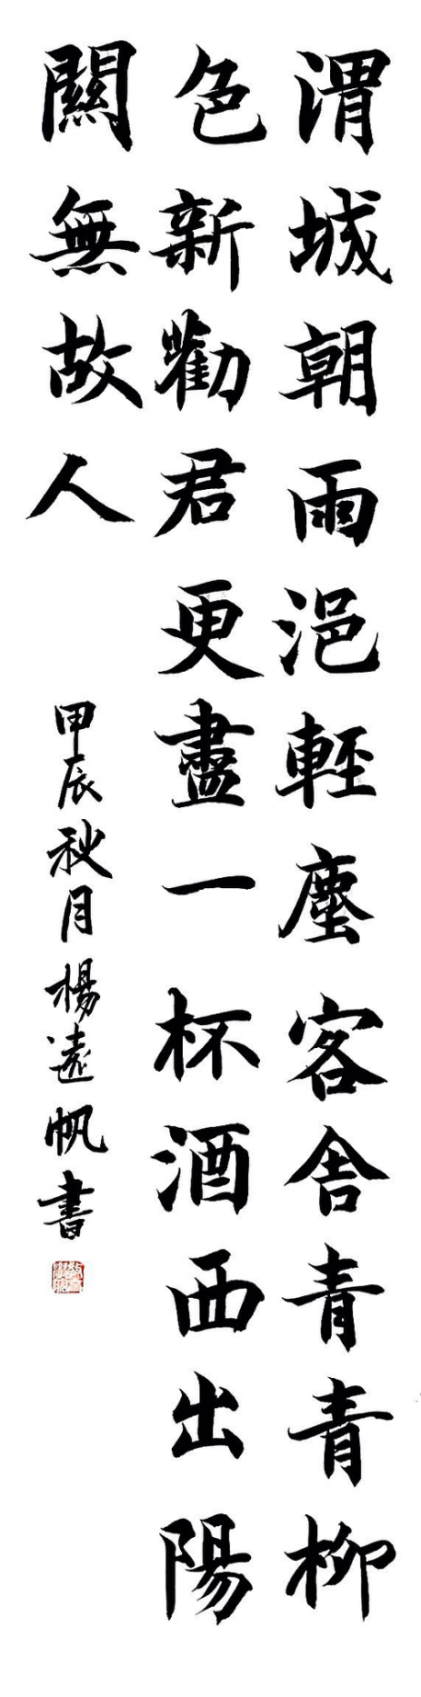 渭城朝雨浥輕塵客舍青青柳
色新勸君更盡一杯酒西出陽
關無故人
甲辰秋月楊遠帆書